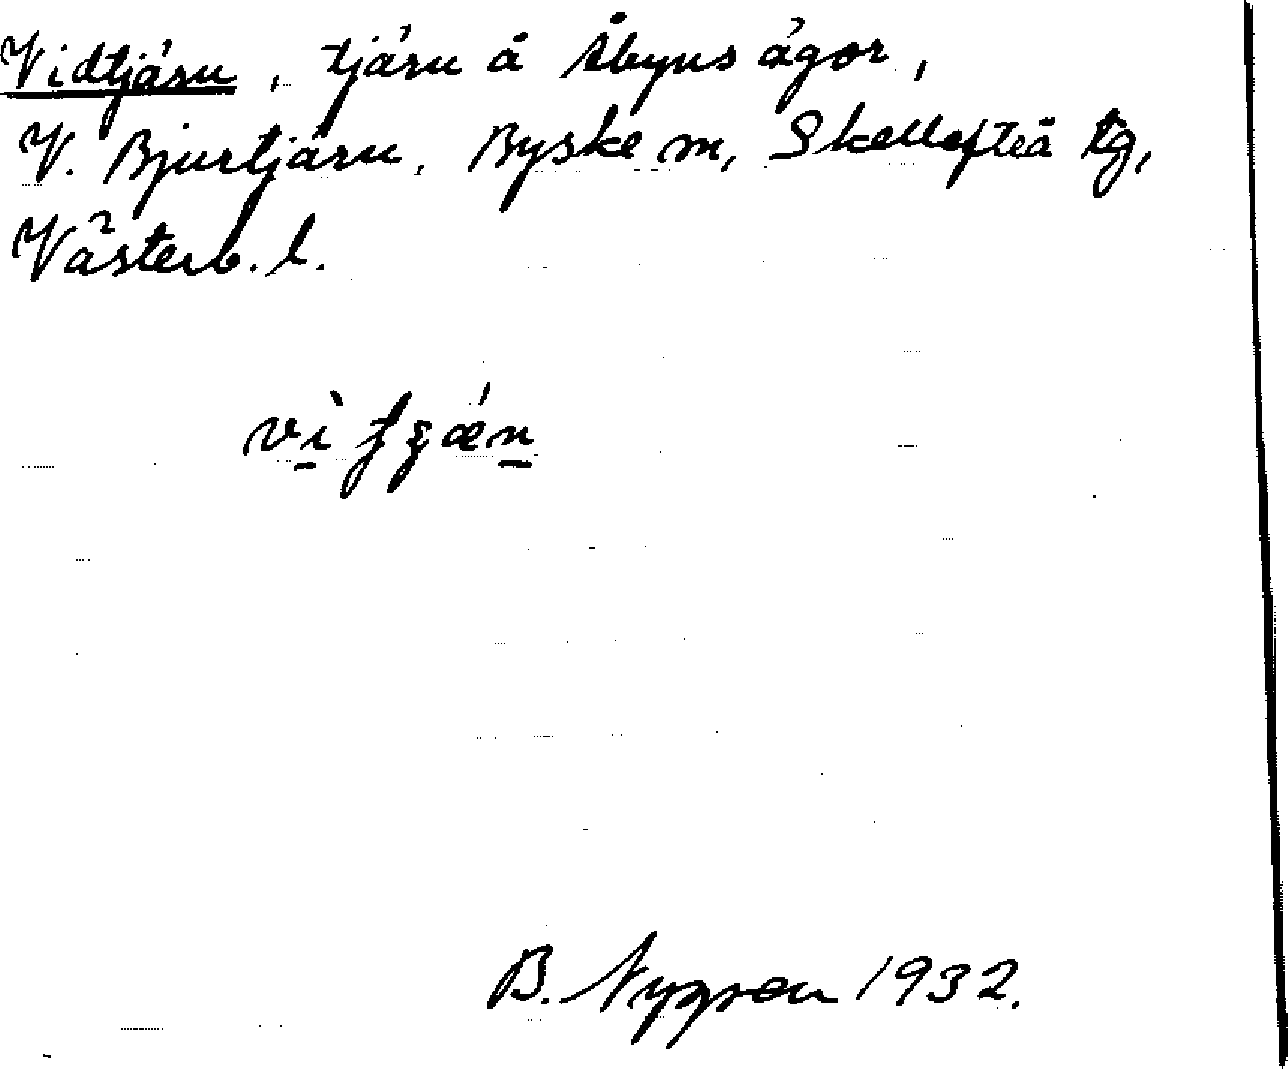 Vidtjärn, tjärn å Åbyns ägor,
V. Bjurtjärn, Byske sn, Skellefteå tg,
Västerb. l.
B. Nygren 1932.